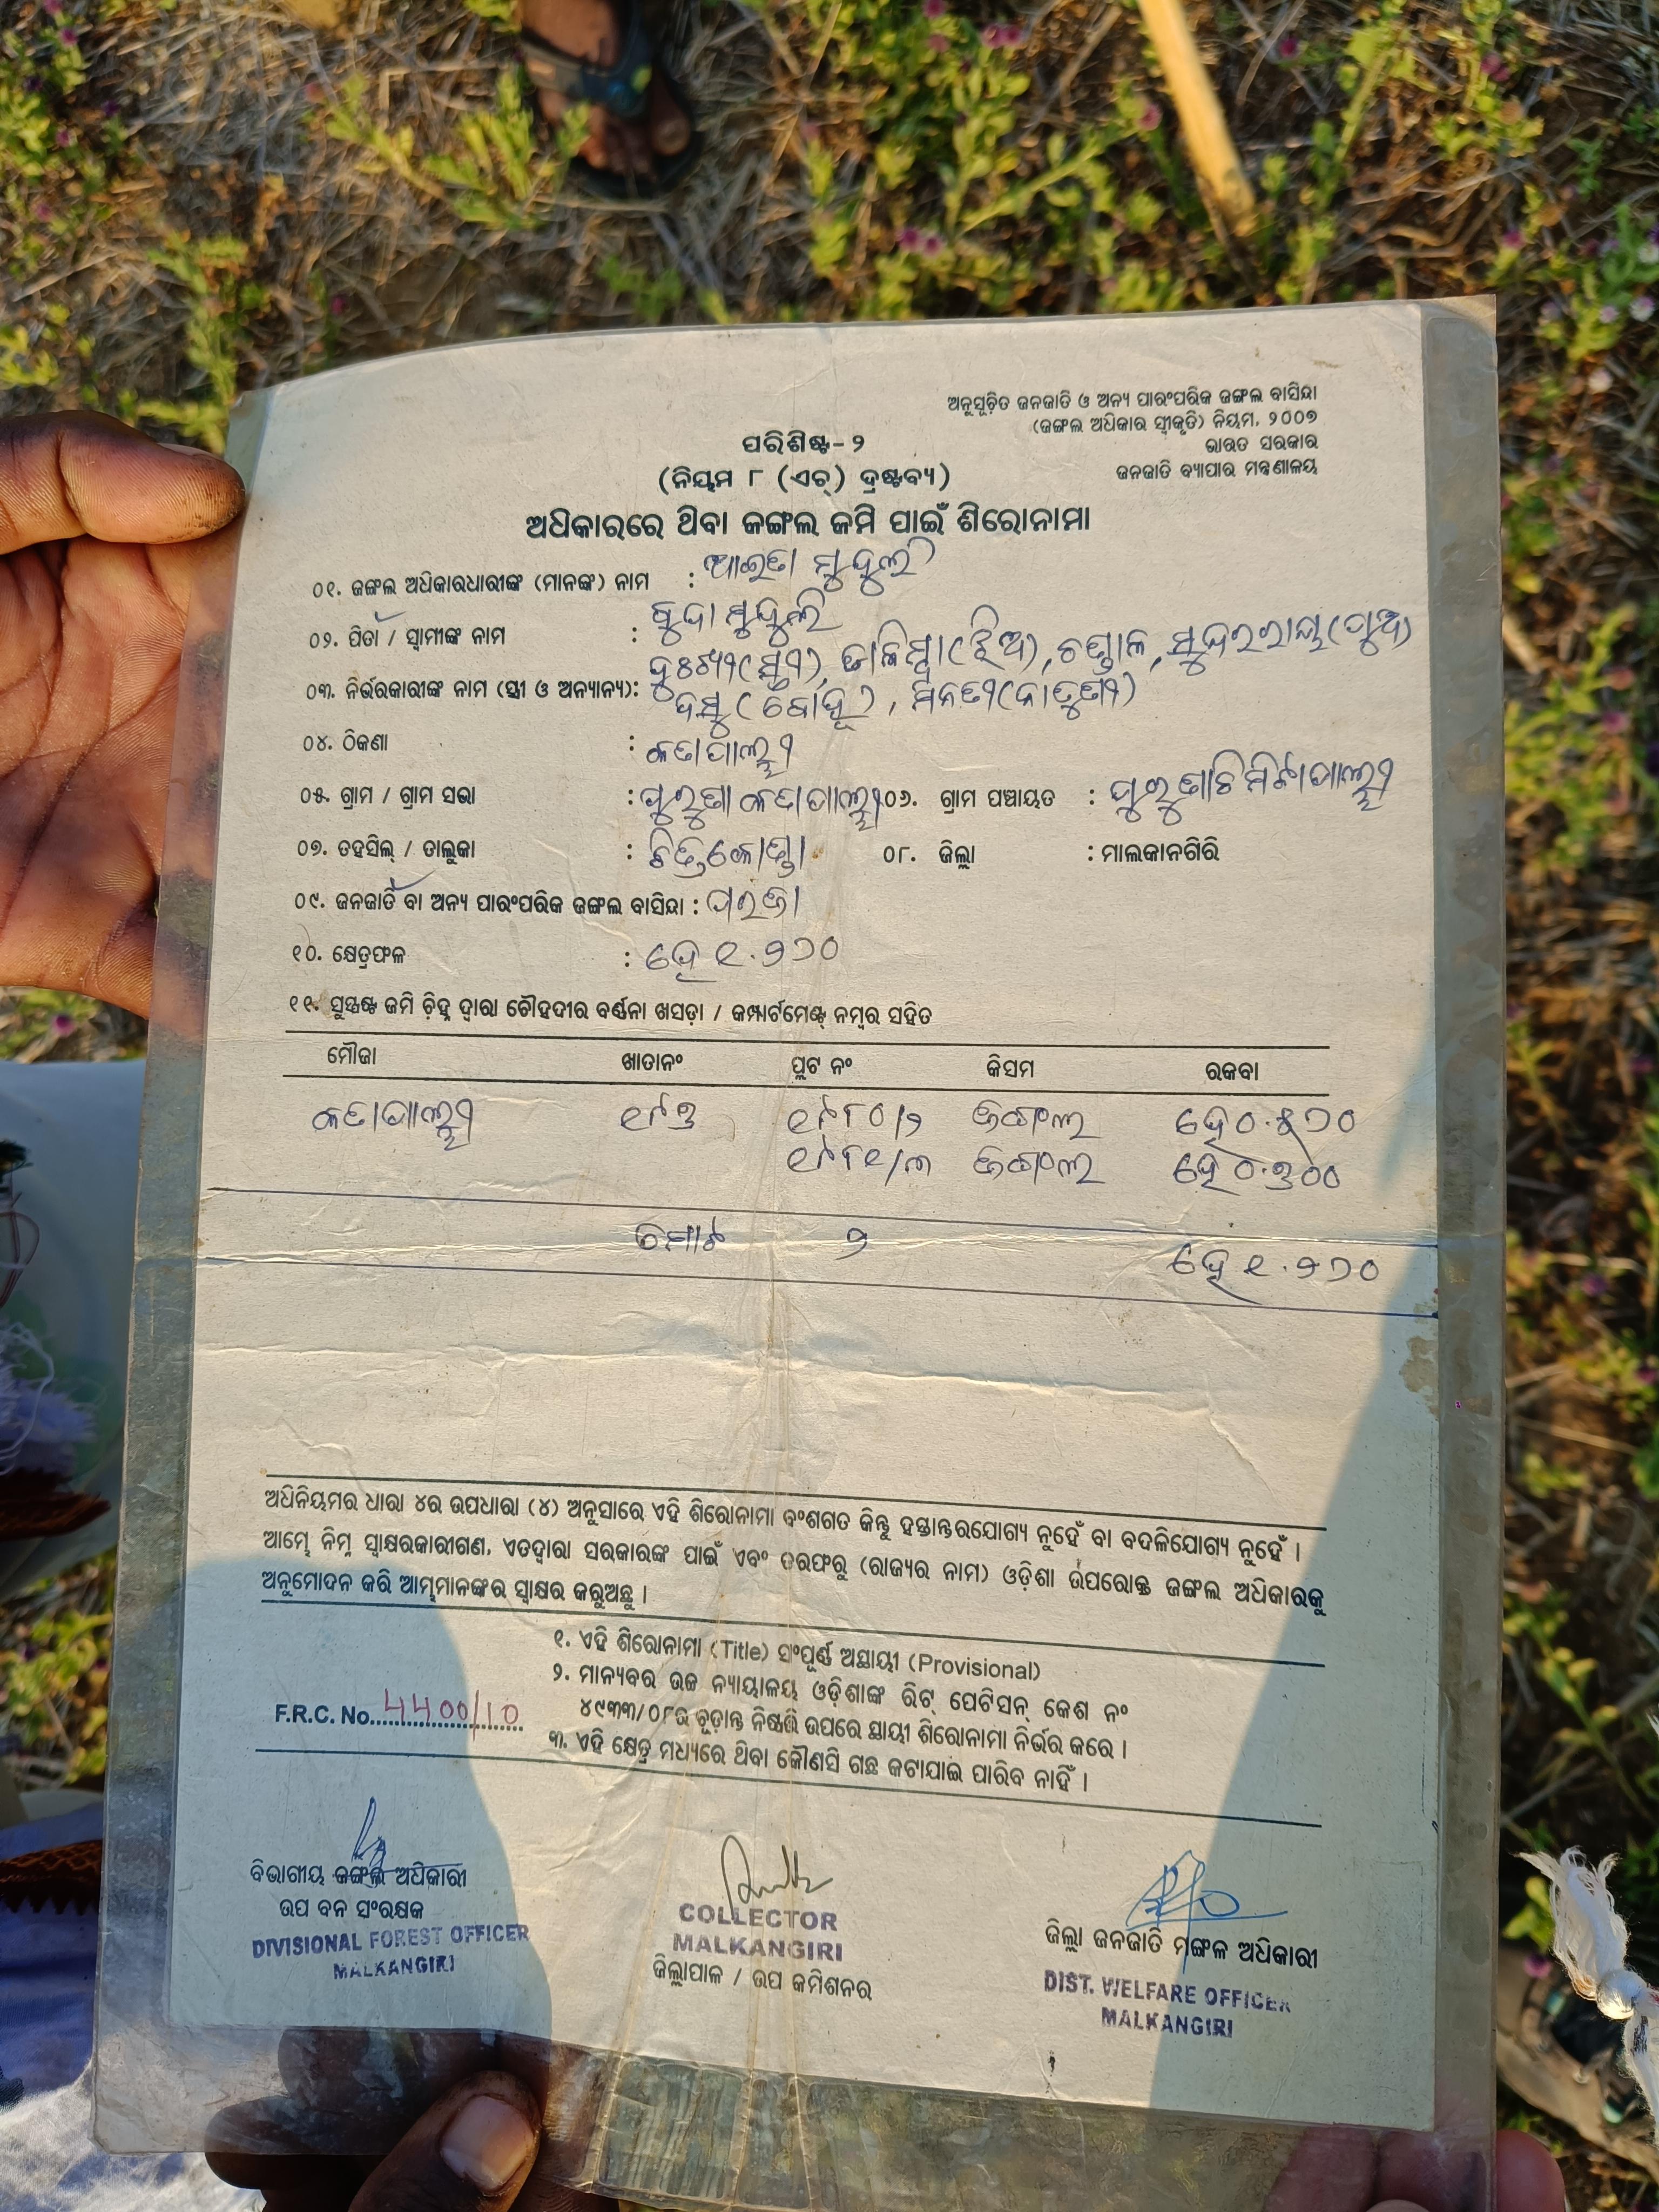 ଅନୁସୂଚିତ ଜନଜାତି ଓ ଅନ୍ୟ ପାରଂପରିକ ଜଙ୍ଗଲ ବାସିନ୍ଦା
(ଜଙ୍ଗଲ ଅଧିକାର ସ୍ୱୀକୃତି) ନିୟମ, ୨୦୦୭
ଭାରତ ସରକାର
ଜନଜାତି ବ୍ୟାପାର ମନ୍ତ୍ରଣାଳୟ
ପରିଶିଷ୍ଟ-୨
(ନିୟମ ୮ (ଏଚ୍) ଦ୍ରଷ୍ଟବ୍ୟ)
ଅଧିକାରରେ ଥିବା ଜଙ୍ଗଲ ଜମି ପାଇଁ ଶିରୋନାମା
୦୧. ଜଙ୍ଗଲ ଅଧିକାରଧାରୀଙ୍କ (ମାନଙ୍କ) ନାମ : ଆଇତା ମୁଦୁଲି
୦୨. ପିତା / ସ୍ୱାମୀଙ୍କ ନାମ : ମୁଦୁଲି
୦୩. ନିର୍ଭରକାରୀଙ୍କ ନାମ (ସ୍ତ୍ରୀ ଓ ଅନ୍ୟାନ୍ୟ): (ସ୍ତ୍ରୀ), (ଝିଅ), (ପୁଅ)
(ବୋହୂ),
୦୪. ଠିକଣା :
୦୫. ଗ୍ରାମ / ଗ୍ରାମ ସଭା : ୦୬. ଗ୍ରାମ ପଞ୍ଚାୟତ :
୦୭. ତହସିଲ୍ / ତାଲୁକା : ଚିତ୍ରକୋଣ୍ଡା ୦୮. ଜିଲ୍ଲା : ମାଲକାନଗିରି
୦୯. ଜନଜାତି ବା ଅନ୍ୟ ପାରଂପରିକ ଜଙ୍ଗଲ ବାସିନ୍ଦା : ପରଜା
୧୦. କ୍ଷେତ୍ରଫଳ : ହେ ୧.୨୭୦
୧୧. ସୁସ୍ପଷ୍ଟ ଜମି ଚିହ୍ନ ଦ୍ୱାରା ଚୌହଦୀର ବର୍ଣ୍ଣନା ଖସଡ଼ା / କମ୍ପାର୍ଟମେଣ୍ଟ୍ ନମ୍ବର ସହିତ
ମୌଜା ଖାତାନଂ ପ୍ଲଟ ନଂ କିସମ ରକବା
ଜଙ୍ଗଲ
ଜଙ୍ଗଲ
ମୋଟ ୨ ହେ ୧.୨୭୦
ଅଧିନିୟମର ଧାରା ୪ର ଉପଧାରା (୪) ଅନୁସାରେ ଏହି ଶିରୋନାମା ବଂଶଗତ କିନ୍ତୁ ହସ୍ତାନ୍ତରଯୋଗ୍ୟ ନୁହେଁ ବା ବଦଳିଯୋଗ୍ୟ ନୁହେଁ ।
ଆମ୍ଭେ ନିମ୍ନ ସ୍ୱାକ୍ଷରକାରୀଗଣ, ଏତଦ୍ୱାରା ସରକାରଙ୍କ ପାଇଁ ଏବଂ ତରଫରୁ (ରାଜ୍ୟର ନାମ) ଓଡ଼ିଶା ଉପରୋକ୍ତ ଜଙ୍ଗଲ ଅଧିକାରକୁ
ଅନୁମୋଦନ କରି ଆମ୍ଭମାନଙ୍କର ସ୍ୱାକ୍ଷର କରୁଅଛୁ ।
୧. ଏହି ଶିରୋନାମା (Title) ସଂପୂର୍ଣ୍ଣ ଅସ୍ଥାୟୀ (Provisional)
୨. ମାନ୍ୟବର ଉଚ୍ଚ ନ୍ୟାୟାଳୟ ଓଡ଼ିଶାଙ୍କ ରିଟ୍ ପେଟିସନ୍ କେଶ ନଂ
୪୯୩୩/୦୮ର ଚୂଡ଼ାନ୍ତ ନିଷ୍ପତ୍ତି ଉପରେ ସ୍ଥାୟୀ ଶିରୋନାମା ନିର୍ଭର କରେ ।
F.R.C. No. 4400/10
୩. ଏହି କ୍ଷେତ୍ର ମଧ୍ୟରେ ଥିବା କୌଣସି ଗଛ କଟାଯାଇ ପାରିବ ନାହିଁ ।
ବିଭାଗୀୟ ଜଙ୍ଗଲ ଅଧିକାରୀ
ଉପ ବନ ସଂରକ୍ଷକ
DIVISIONAL FOREST OFFICER
MALKANGIRI
COLLECTOR
MALKANGIRI
ଜିଲ୍ଲାପାଳ / ଉପ କମିଶନର
ଜିଲ୍ଲା ଜନଜାତି ମଙ୍ଗଳ ଅଧିକାରୀ
DIST. WELFARE OFFICER
MALKANGIRI